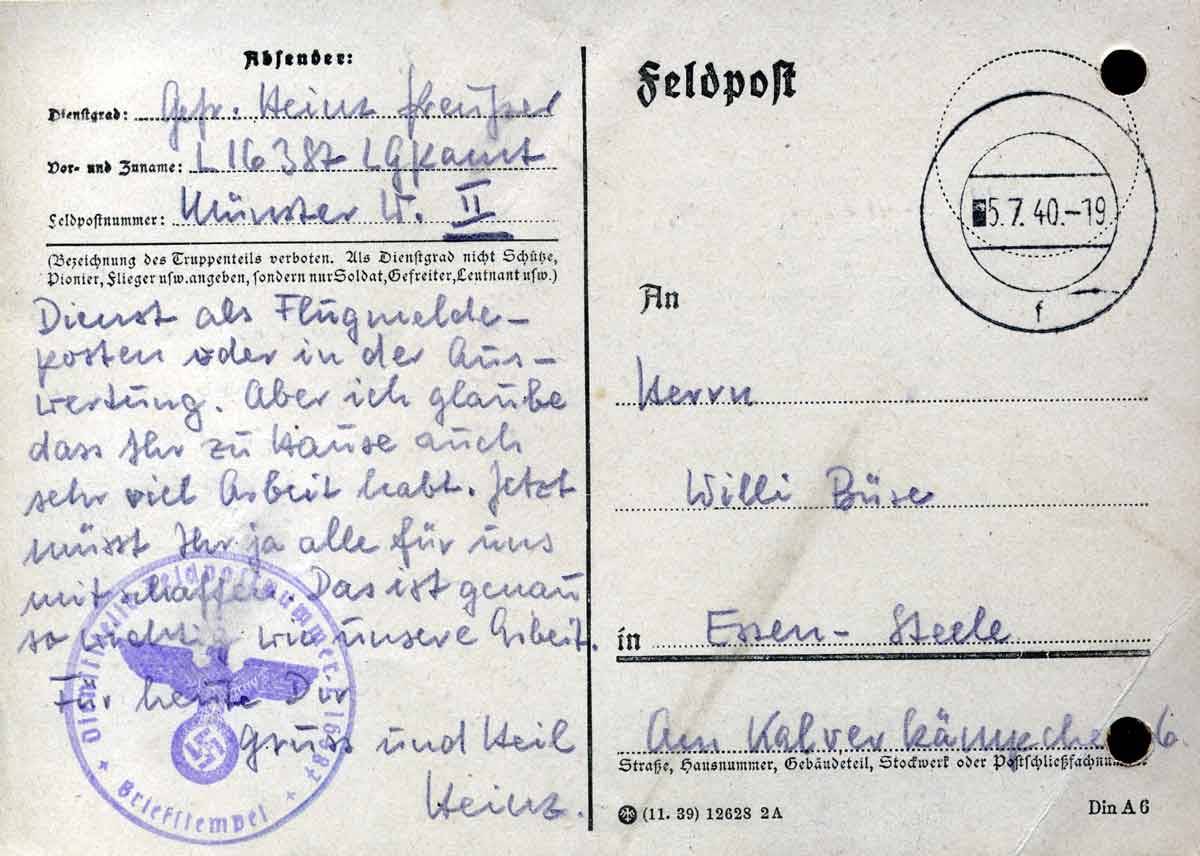 Absender:
Dienstgrad: Gefr. Heinz
Vor- und Zuname: L 16387 LGPamt
Feldpostnummer: Münster W. II
(Bezeichnung des Truppenteils verboten. Als Dienstgrad nicht Schütze,
Pionier, Flieger usw. angeben, sondern nur Soldat, Gefreiter, Leutnant usw.)
Dienst als Flugmelde-
posten oder in der Aus-
wertung. Aber ich glaube
dass Ihr zu Hause auch
sehr viel Arbeit habt. Jetzt
müsst Ihr ja alle für uns
mitschaffen. Das ist genau
so wichtig wie unsere Arbeit.
Für heute Dir
Gruss und Heil
Heinz.
Dienststelle Feldpostnummer L 16387
Briefstempel
Feldpost
5.7.40.-19
f
An
Herrn
Willi Büse
in Essen-Steele
Am Kalverkämpchen 6
Straße, Hausnummer, Gebäudeteil, Stockwerk oder Postschließfachnummer
(11. 39) 12628 2A
Din A 6